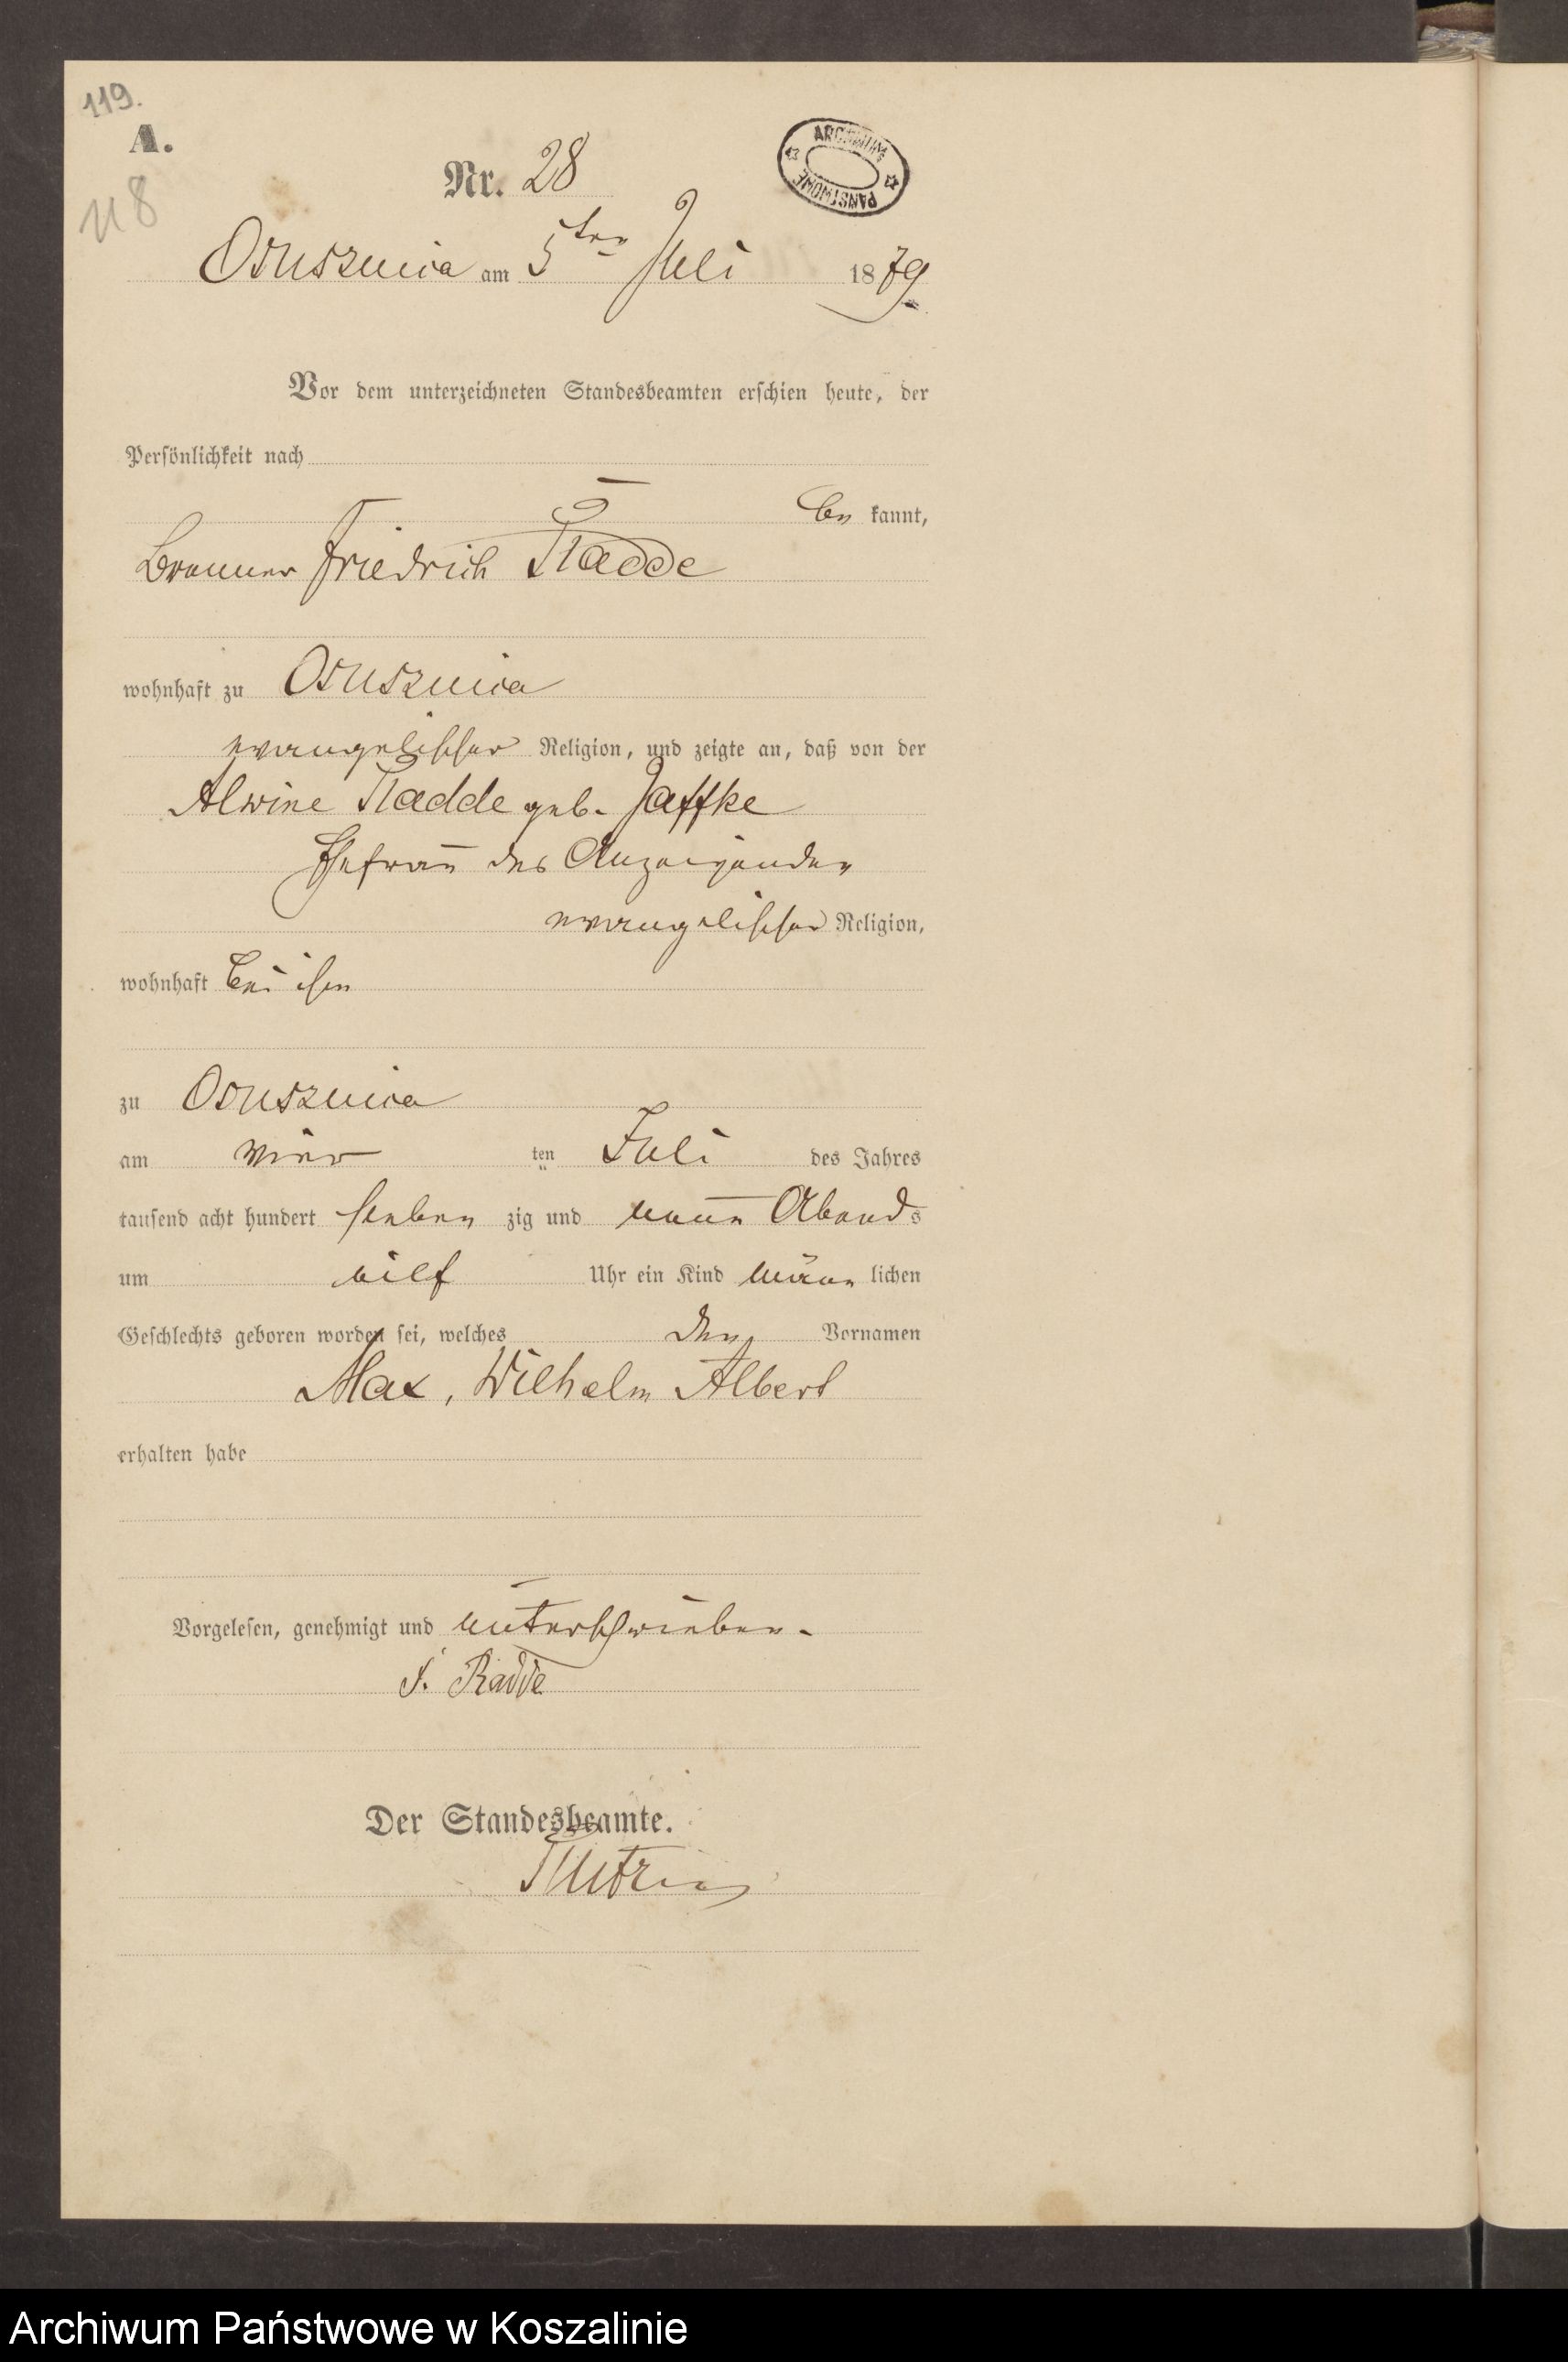 119.
A.
118
Nr. 28
ARCHIWUM PAŃSTWOWE
Osusznica am 5ten Juli 1879
Vor dem unterzeichneten Standesbeamten erschien heute, der
Persönlichkeit nach
be kannt,
Brenner Friedrich Radde
wohnhaft zu Osusznica
evangelischer Religion, und zeigte an, daß von der
Alwine Radde geb. Jaffke
Ehefrau des Anzeigenden
evangelischer Religion,
wohnhaft bei ihm
zu Osusznica
am vier ten Juli des Jahres
tausend acht hundert sieben zig und neun Abends
um eilf Uhr ein Kind männ lichen
Geschlechts geboren worden sei, welches den Vornamen
Max, Wilhelm Albert
erhalten habe
Vorgelesen, genehmigt und unterschrieben.
F. Radde
Der Standesbeamte.
Archiwum Państwowe w Koszalinie